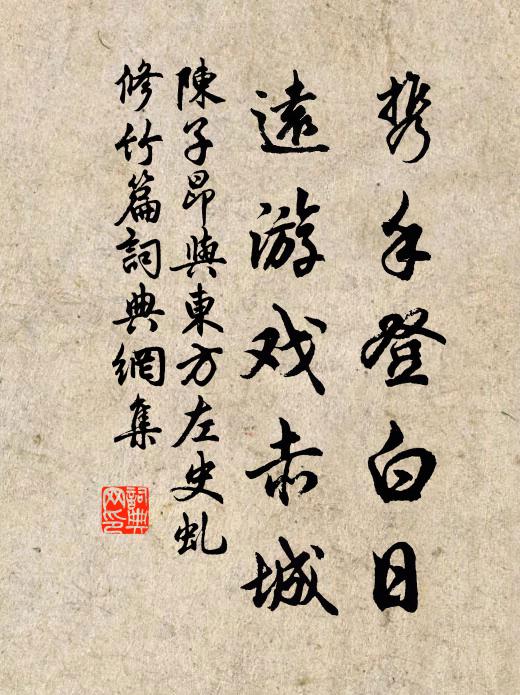 携手登白日
遠游戏赤城
陳子昂與東方左史虬
修竹篇詞典網集
詞典网印